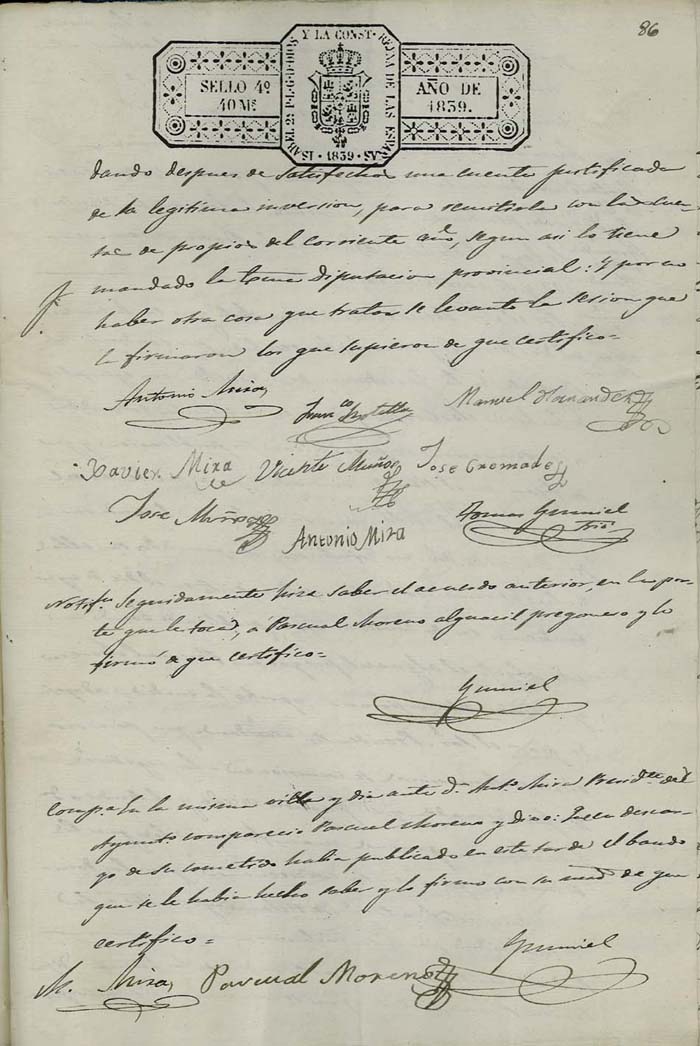 86
ISABEL 2ª P.L.G.D.DIOS Y LA CONST. REYNA DE LAS ESPAÑAS
SELLO 4º
40 Mˢ
AÑO DE
1839.
1839
dando despues de satisfecha una cuenta justificada
de la legitima inversion, para remitirla con la cuen
ta de propios del corriente año, segun asi lo tiene
mandado la Exma Diputacion provincial: Y por no
haber otra cosa que tratar se levantó la sesion que
la firmaron los que supieron de que certifico=
Antonio Mira
Franco
Manuel Hernandez
Xavier Mira Vicente Muños Jose Cremades
Jose Muños
Antonio Mira
Tomas Gumiel
Srio
Notifn Seguidamente hice saber el acuerdo anterior, en la par
te que le toca, a Pascual Moreno alguacil pregonero y lo
firmó de que certifico=
Gumiel
Compa En la misma villa y dia ante D. Anto Mira Presidte del
Ayunto comparecio Pascual Moreno y dijo: Que en descar
go de su cometido habia publicado en esta tarde el bando
que se le habia hecho saber y lo firmo con su mrd de que
certifico=
Gumiel
M. Mira Pascual Moreno